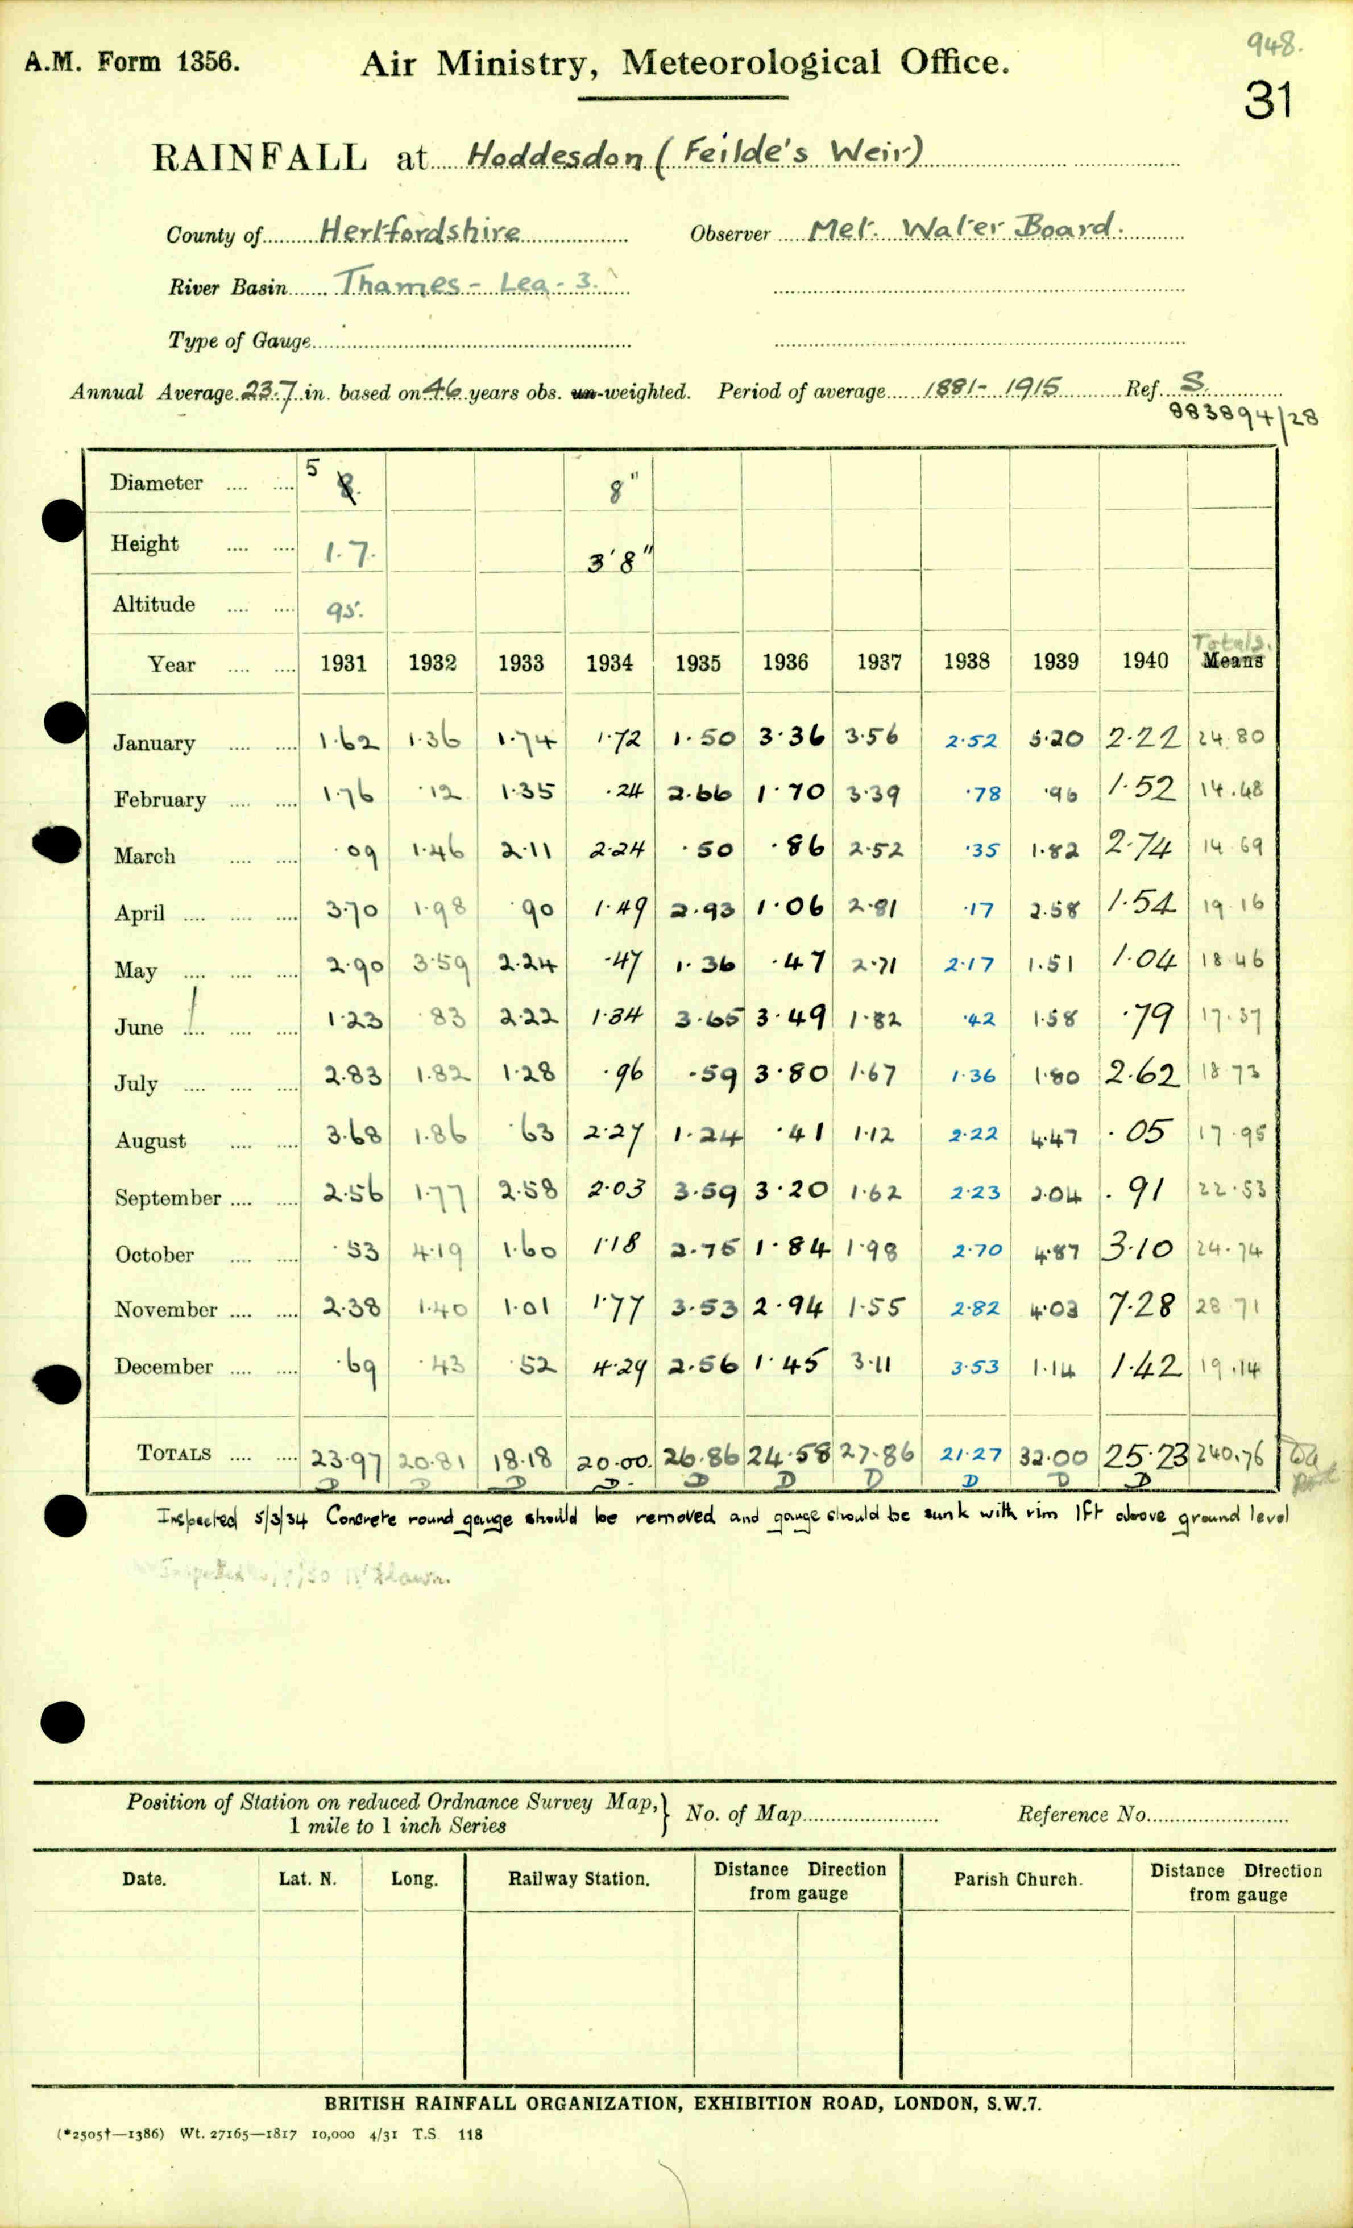 948.
A.M. Form 1356.
Air Ministry, Meteorological Office.
31
RAINFALL at Hoddesdon (Feilde's Weir)
County of Hertfordshire Observer Met. Water Board.
River Basin Thames - Lea - 3.
Type of Gauge
Annual Average 23.7 in. based on 46 years obs. un-weighted. Period of average 1881-1915 Ref. S.
883894/28
Diameter 5 8. 8"
Height 1.7. 3'8"
Altitude 95.
Totals.
Year 1931 1932 1933 1934 1935 1936 1937 1938 1939 1940 Means
January 1.62 1.36 1.74 1.72 1.50 3.36 3.56 2.52 5.20 2.22 24.80
February 1.76 .12 1.35 .24 2.66 1.70 3.39 .78 .96 1.52 14.48
March .09 1.46 2.11 2.24 .50 .86 2.52 .35 1.82 2.74 14.69
April 3.70 1.98 .90 1.49 2.93 1.06 2.81 .17 2.58 1.54 19.16
May 2.90 3.59 2.24 .47 1.36 .47 2.71 2.17 1.51 1.04 18.46
June 1.23 .83 2.22 1.34 3.65 3.49 1.82 .42 1.58 .79 17.37
July 2.83 1.82 1.28 .96 .59 3.80 1.67 1.36 1.80 2.62 18.73
August 3.68 1.86 .63 2.27 1.24 .41 1.12 2.22 4.47 .05 17.95
September 2.56 1.77 2.58 2.03 3.59 3.20 1.62 2.23 2.04 .91 22.53
October .53 4.19 1.60 1.18 2.75 1.84 1.98 2.70 4.87 3.10 24.74
November 2.38 1.40 1.01 1.77 3.53 2.94 1.55 2.82 4.03 7.28 28.71
December .69 .43 .52 4.29 2.56 1.45 3.11 3.53 1.14 1.42 19.14
TOTALS 23.97 20.81 18.18 20.00. 26.86 24.58 27.86 21.27 32.00 25.23 240.76
D D D D D D D D D
Inspected 5/3/34 Concrete round gauge should be removed and gauge should be sunk with rim 1ft above ground level
Position of Station on reduced Ordnance Survey Map,} No. of Map Reference No.
1 mile to 1 inch Series
Date. Lat. N. Long. Railway Station. Distance Direction Parish Church. Distance Direction
from gauge from gauge
BRITISH RAINFALL ORGANIZATION, EXHIBITION ROAD, LONDON, S.W.7.
(*2505†—1386) Wt. 27165—1817 10,000 4/31 T.S. 118